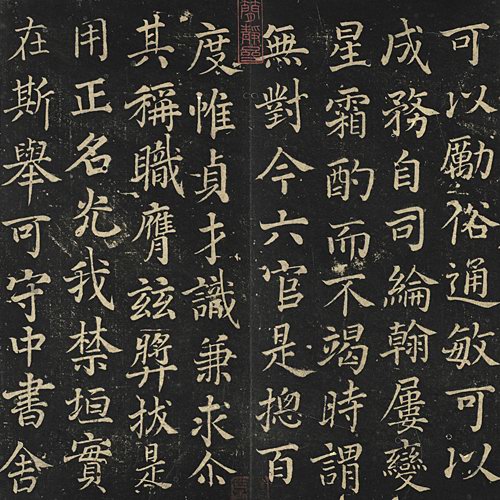 可以勵俗通敏可以
成務自司綸翰屢變
星霜酌而不竭時謂
無對今六官是揔百
度惟貞才識兼求尒
其稱職膺茲獎拔是
用正名光我禁垣實
在斯舉可守中書舍